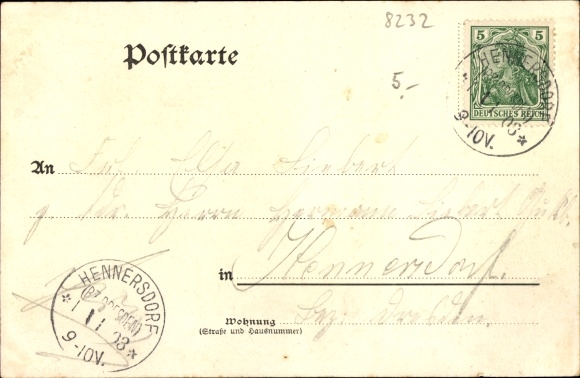 8232
Postkarte
5.-
5 5
DEUTSCHES REICH
HENNERSDORF
9-10V.
An Frl. Ella Siebert
Herrn Hermann Siebert
in Hennersdorf.
Bez. Dresden.
Wohnung
(Straße und Hausnummer)
HENNERSDORF
(BZ. DRESDEN)
9-10V.